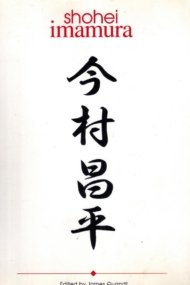 shohei
imamura
今村昌平
Edited by James Quandt